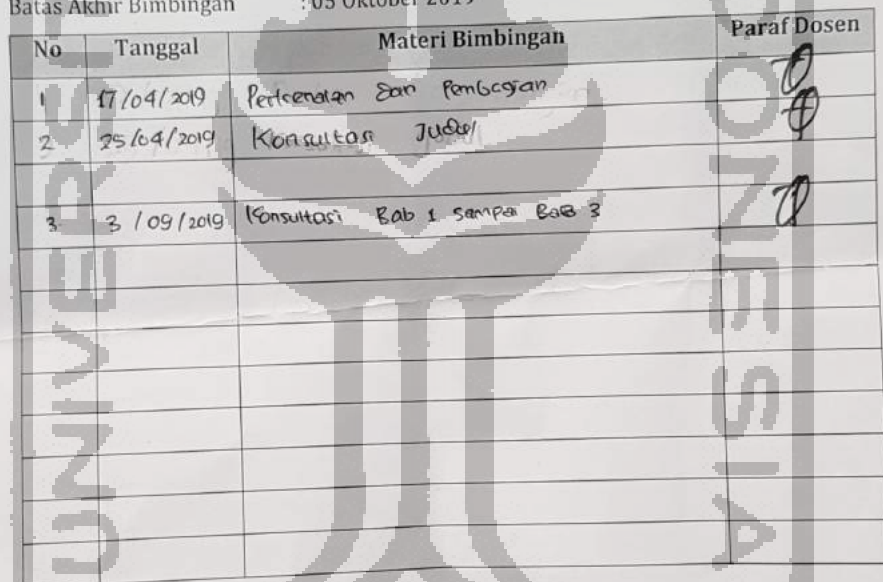 Batas Akhir Bimbingan : 05 Oktober 2019
No Tanggal Materi Bimbingan Paraf Dosen
1 17/04/2019 Perkenalan dan Pembagian
2 25/04/2019 Konsultasi Judul
3. 3 / 09 / 2019 Konsultasi Bab 1 sampai Bab 3
UNIVERSI
ONESIA